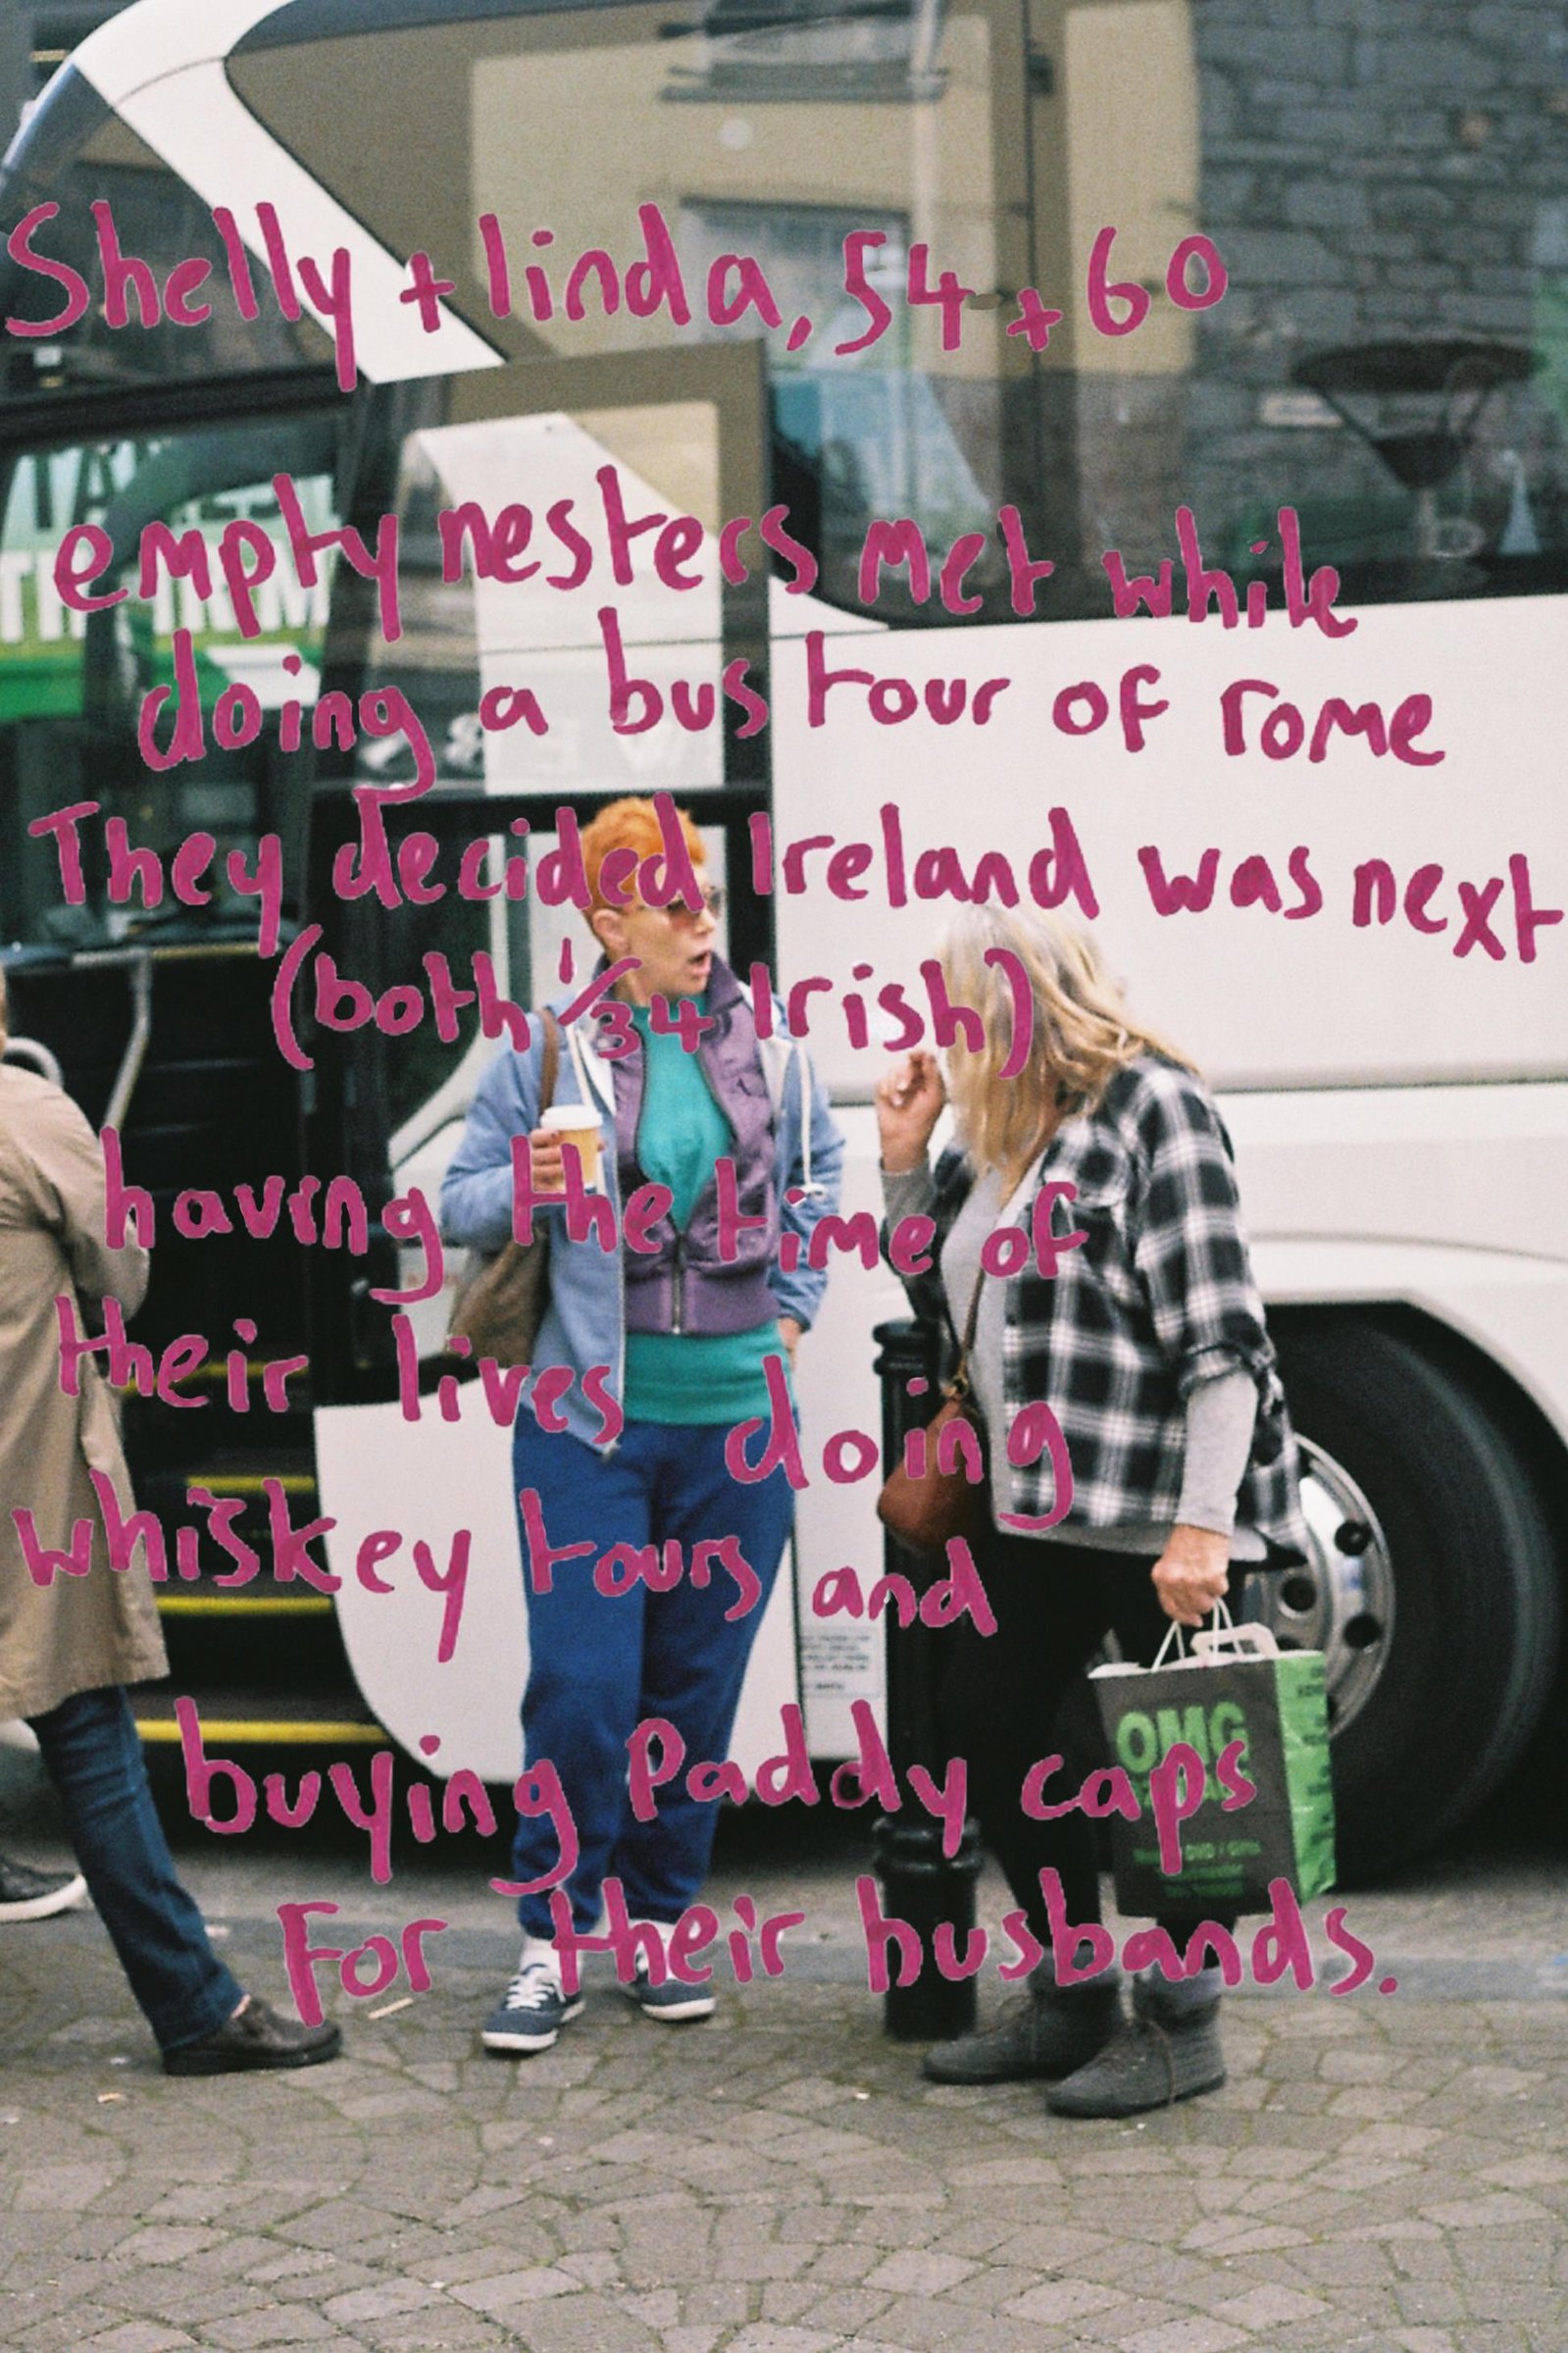 Shelly + linda, 54 + 60
empty nesters met while
doing a bus tour of rome
They decided Ireland was next
(both 1/34 Irish)
having the time of
their lives doing
whiskey tours and
buying Paddy caps
For their husbands.
OMG